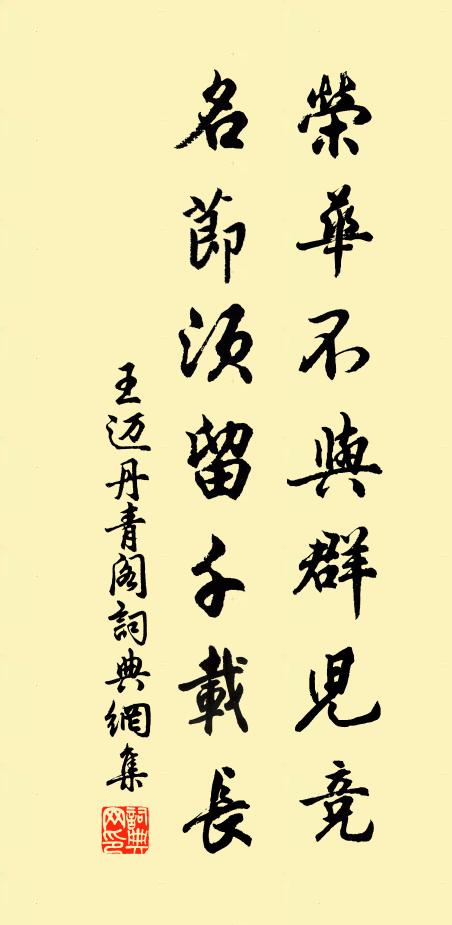 榮華不與群児競
名節須留千載長
王迈丹青阁詞典網集
詞典网印